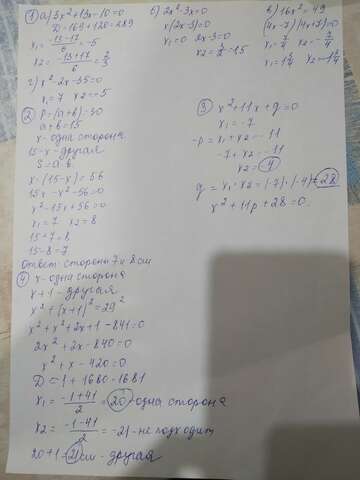 ① а) 3x²+13x-10=0
D=169+120=289
x₁=(-13-17)/6=-5
x₂=(-13+17)/6=2/3
б) 2x²-3x=0
x(2x-3)=0
x₁=0 2x-3=0
x₂=3/2=1.5
в) 16x²=49
(4x-7)(4x+7)=0
x₁=7/4 x₂=-7/4
x₁=1 3/4 x₂=-1 3/4
г) x²-2x-35=0
x₁=7 x₂=-5
② P=(a+b)=30
a+b=15
x-одна сторона
15-x-другая
S=a·b
x·(15-x)=56
15x-x²-56=0
x²-15x+56=0
x₁=7 x₂=8
15-7=8
15-8=7
Ответ: стороны 7 и 8 см
③ x²+11x+q=0
x₁=-7
-p=x₁+x₂=-11
-7+x₂=-11
x₂=-4
q=x₁·x₂=(-7)·(-4)=28
x²+11p+28=0
④ x-одна сторона
x+1-другая
x²+(x+1)²=29²
x²+x²+2x+1-841=0
2x²+2x-840=0
x²+x-420=0
D=1+1680=1681
x₁=(-1+41)/2=20-одна сторона
x₂=(-1-41)/2=-21-не подходит
20+1=21см-другая